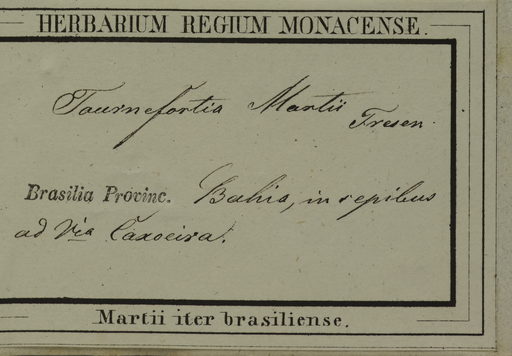 HERBARIUM REGIUM MONACENSE.
Tournefortia Martii
Fresen.
Brasilia Provinc. Bahia, in sepibus
ad Via Caxoeira.
Martii iter brasiliense.